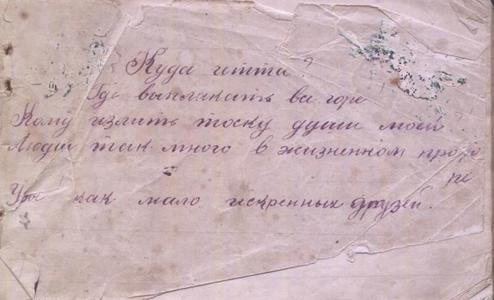 Куда итти?
Где выплакать все горе
Кому излить тоску души моей
Людей так много в жизненном
Увы как мало искренных друзей.